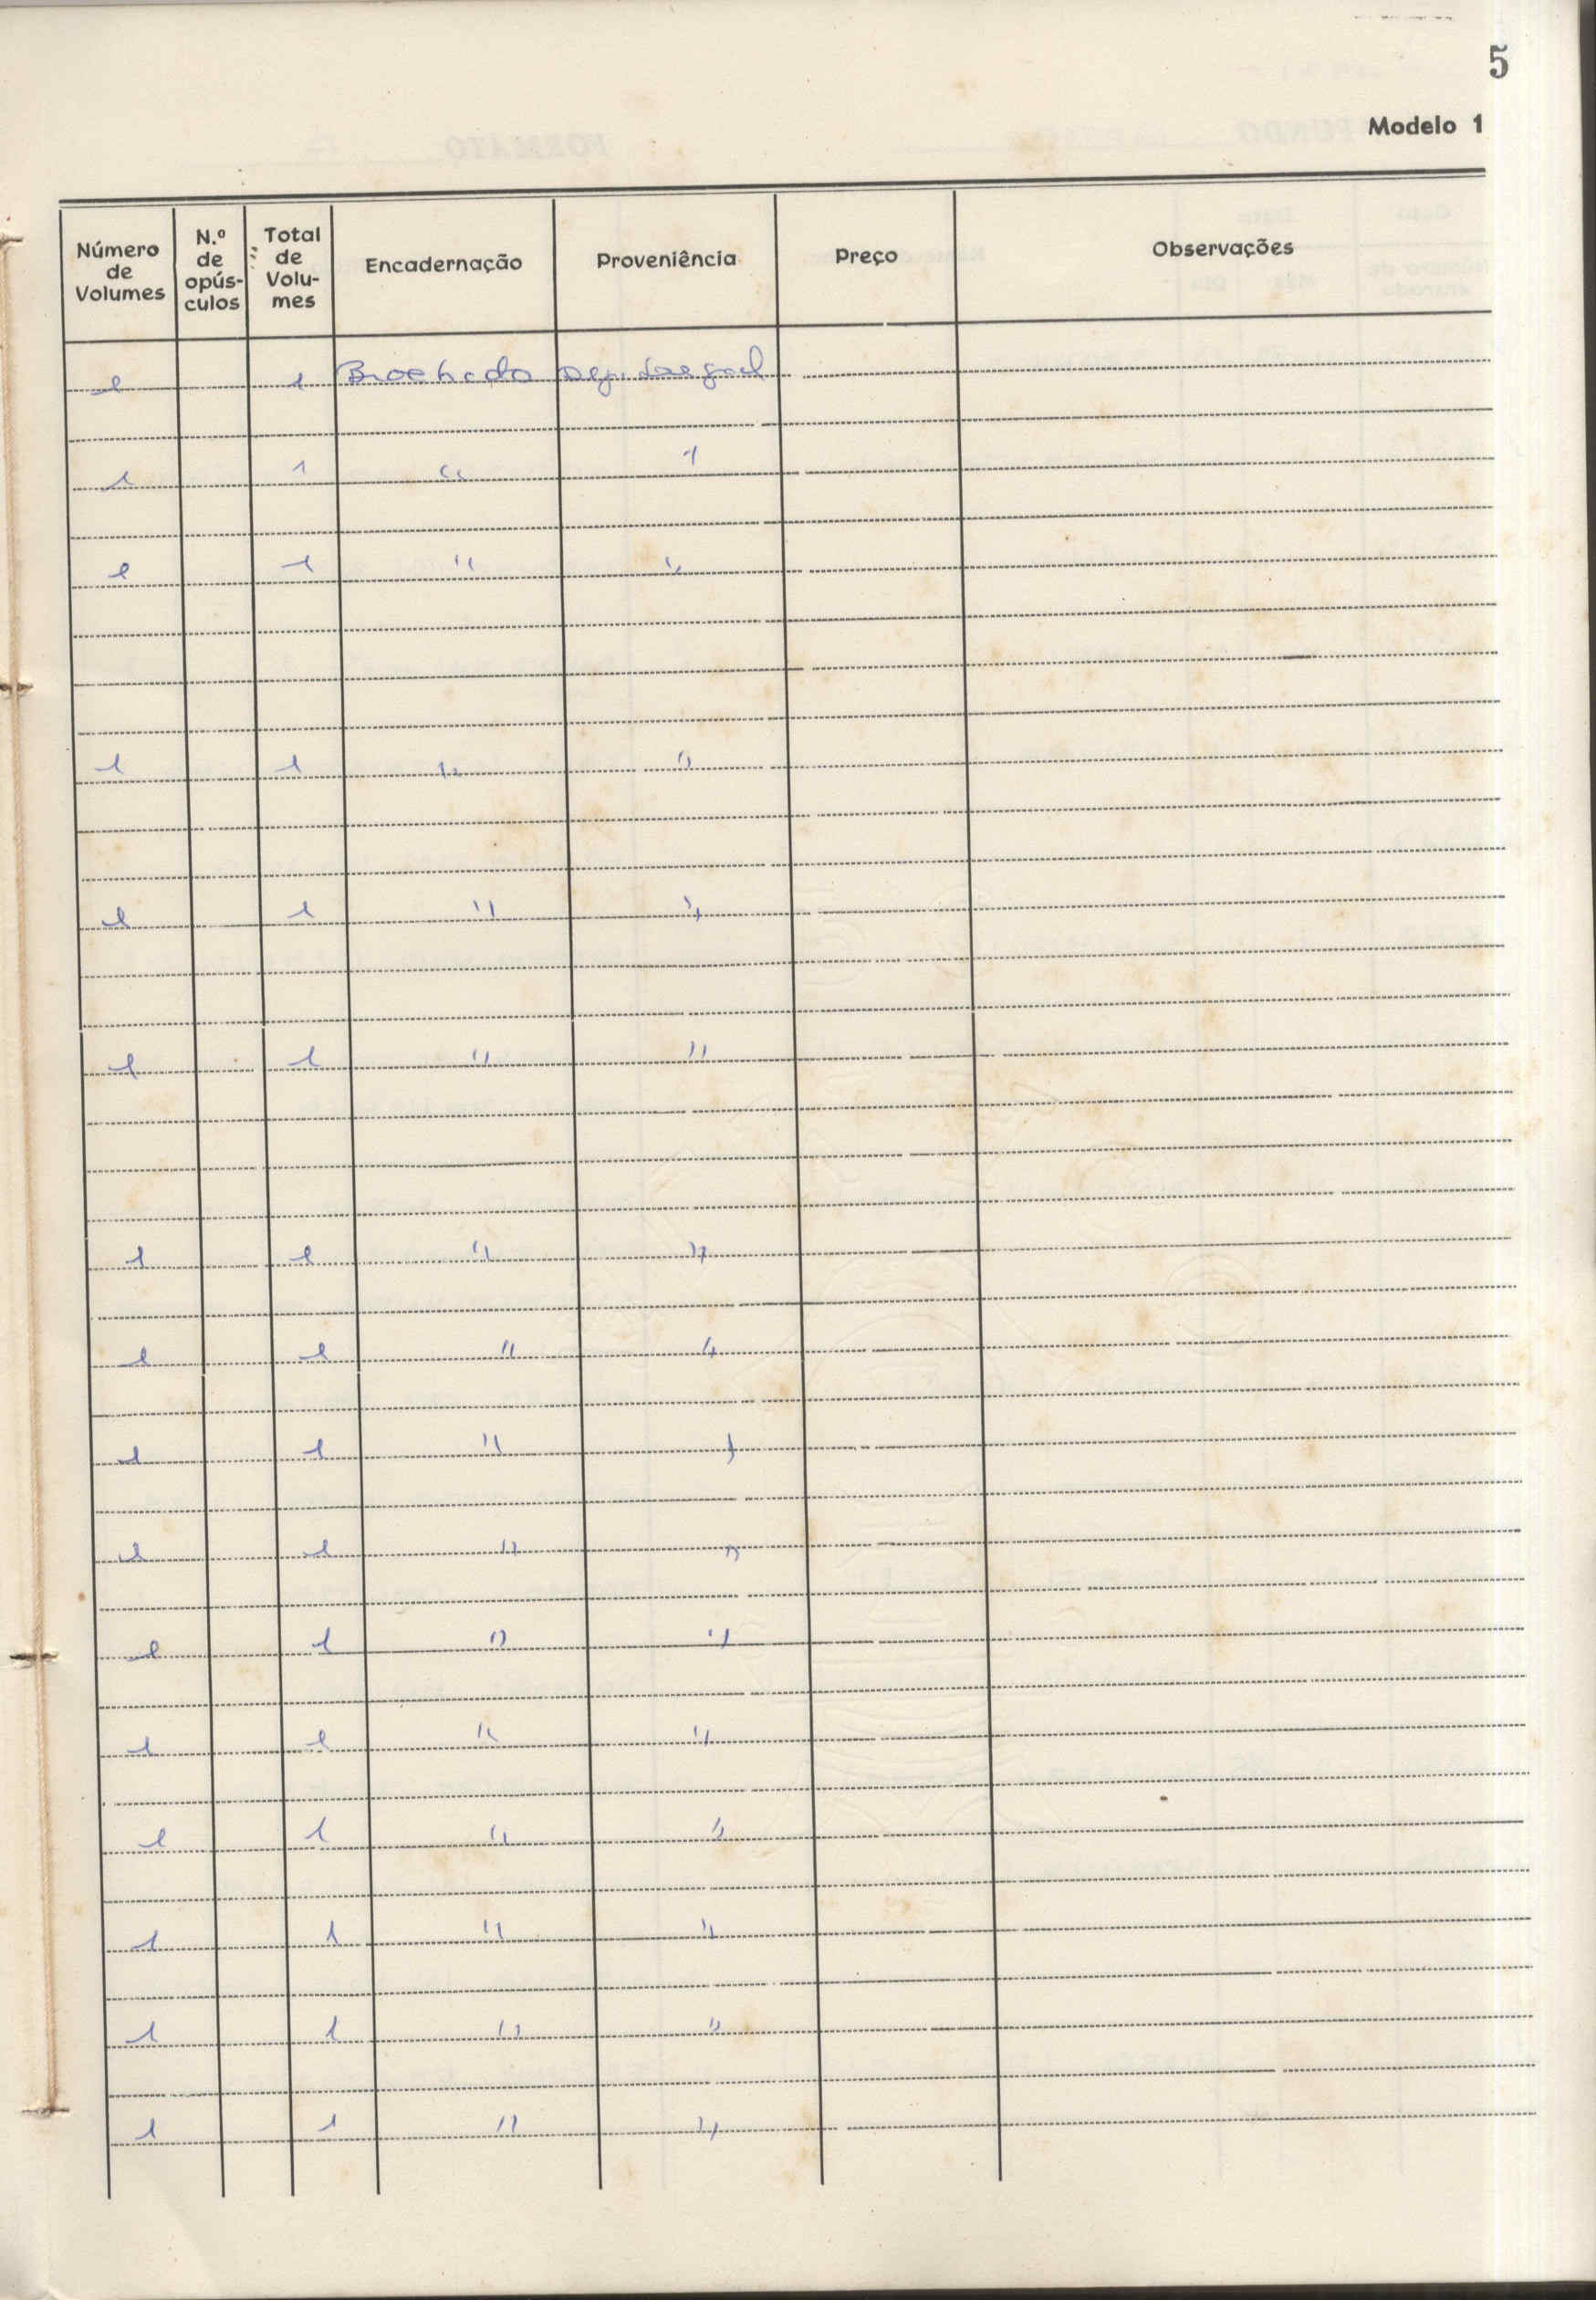 5
Modelo 1
Número de Volumes N.º de opús- culos Total de Volu- mes Encadernação Proveniência Preço Observações
1 1 Brochado Dep. Legal
1 1 " "
1 1 " "
1 1 " "
1 1 " "
1 1 " "
1 1 " "
1 1 " "
1 1 " "
1 1 " "
1 1 " "
1 1 " "
1 1 " "
1 1 " "
1 1 " "
1 1 " "